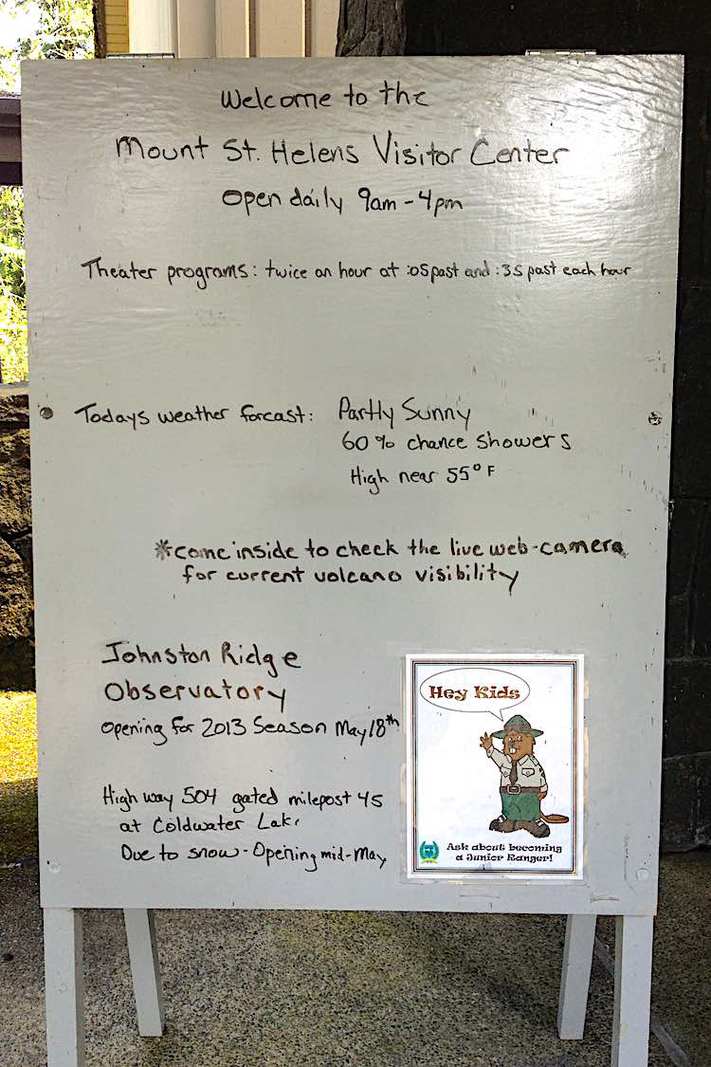 Welcome to the
Mount St. Helens Visitor Center
Open daily 9am - 4pm
Theater programs: twice an hour at :05 past and :35 past each hour
Todays weather forcast: Partly Sunny
60% chance showers
High near 55°F
*come inside to check the live web-camera
for current volcano visibility
Johnston Ridge
Observatory
Opening for 2013 Season May 18th
Highway 504 gated milepost 45
at Coldwater Lake
Due to snow - Opening mid-May
Hey Kids
Ask about becoming
a Junior Ranger!